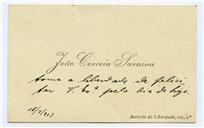 João Correia Saraiva
toma a liberdade de felici
tar V. Ex.ª pelo dia de hoje.
Avenida da Liberdade,